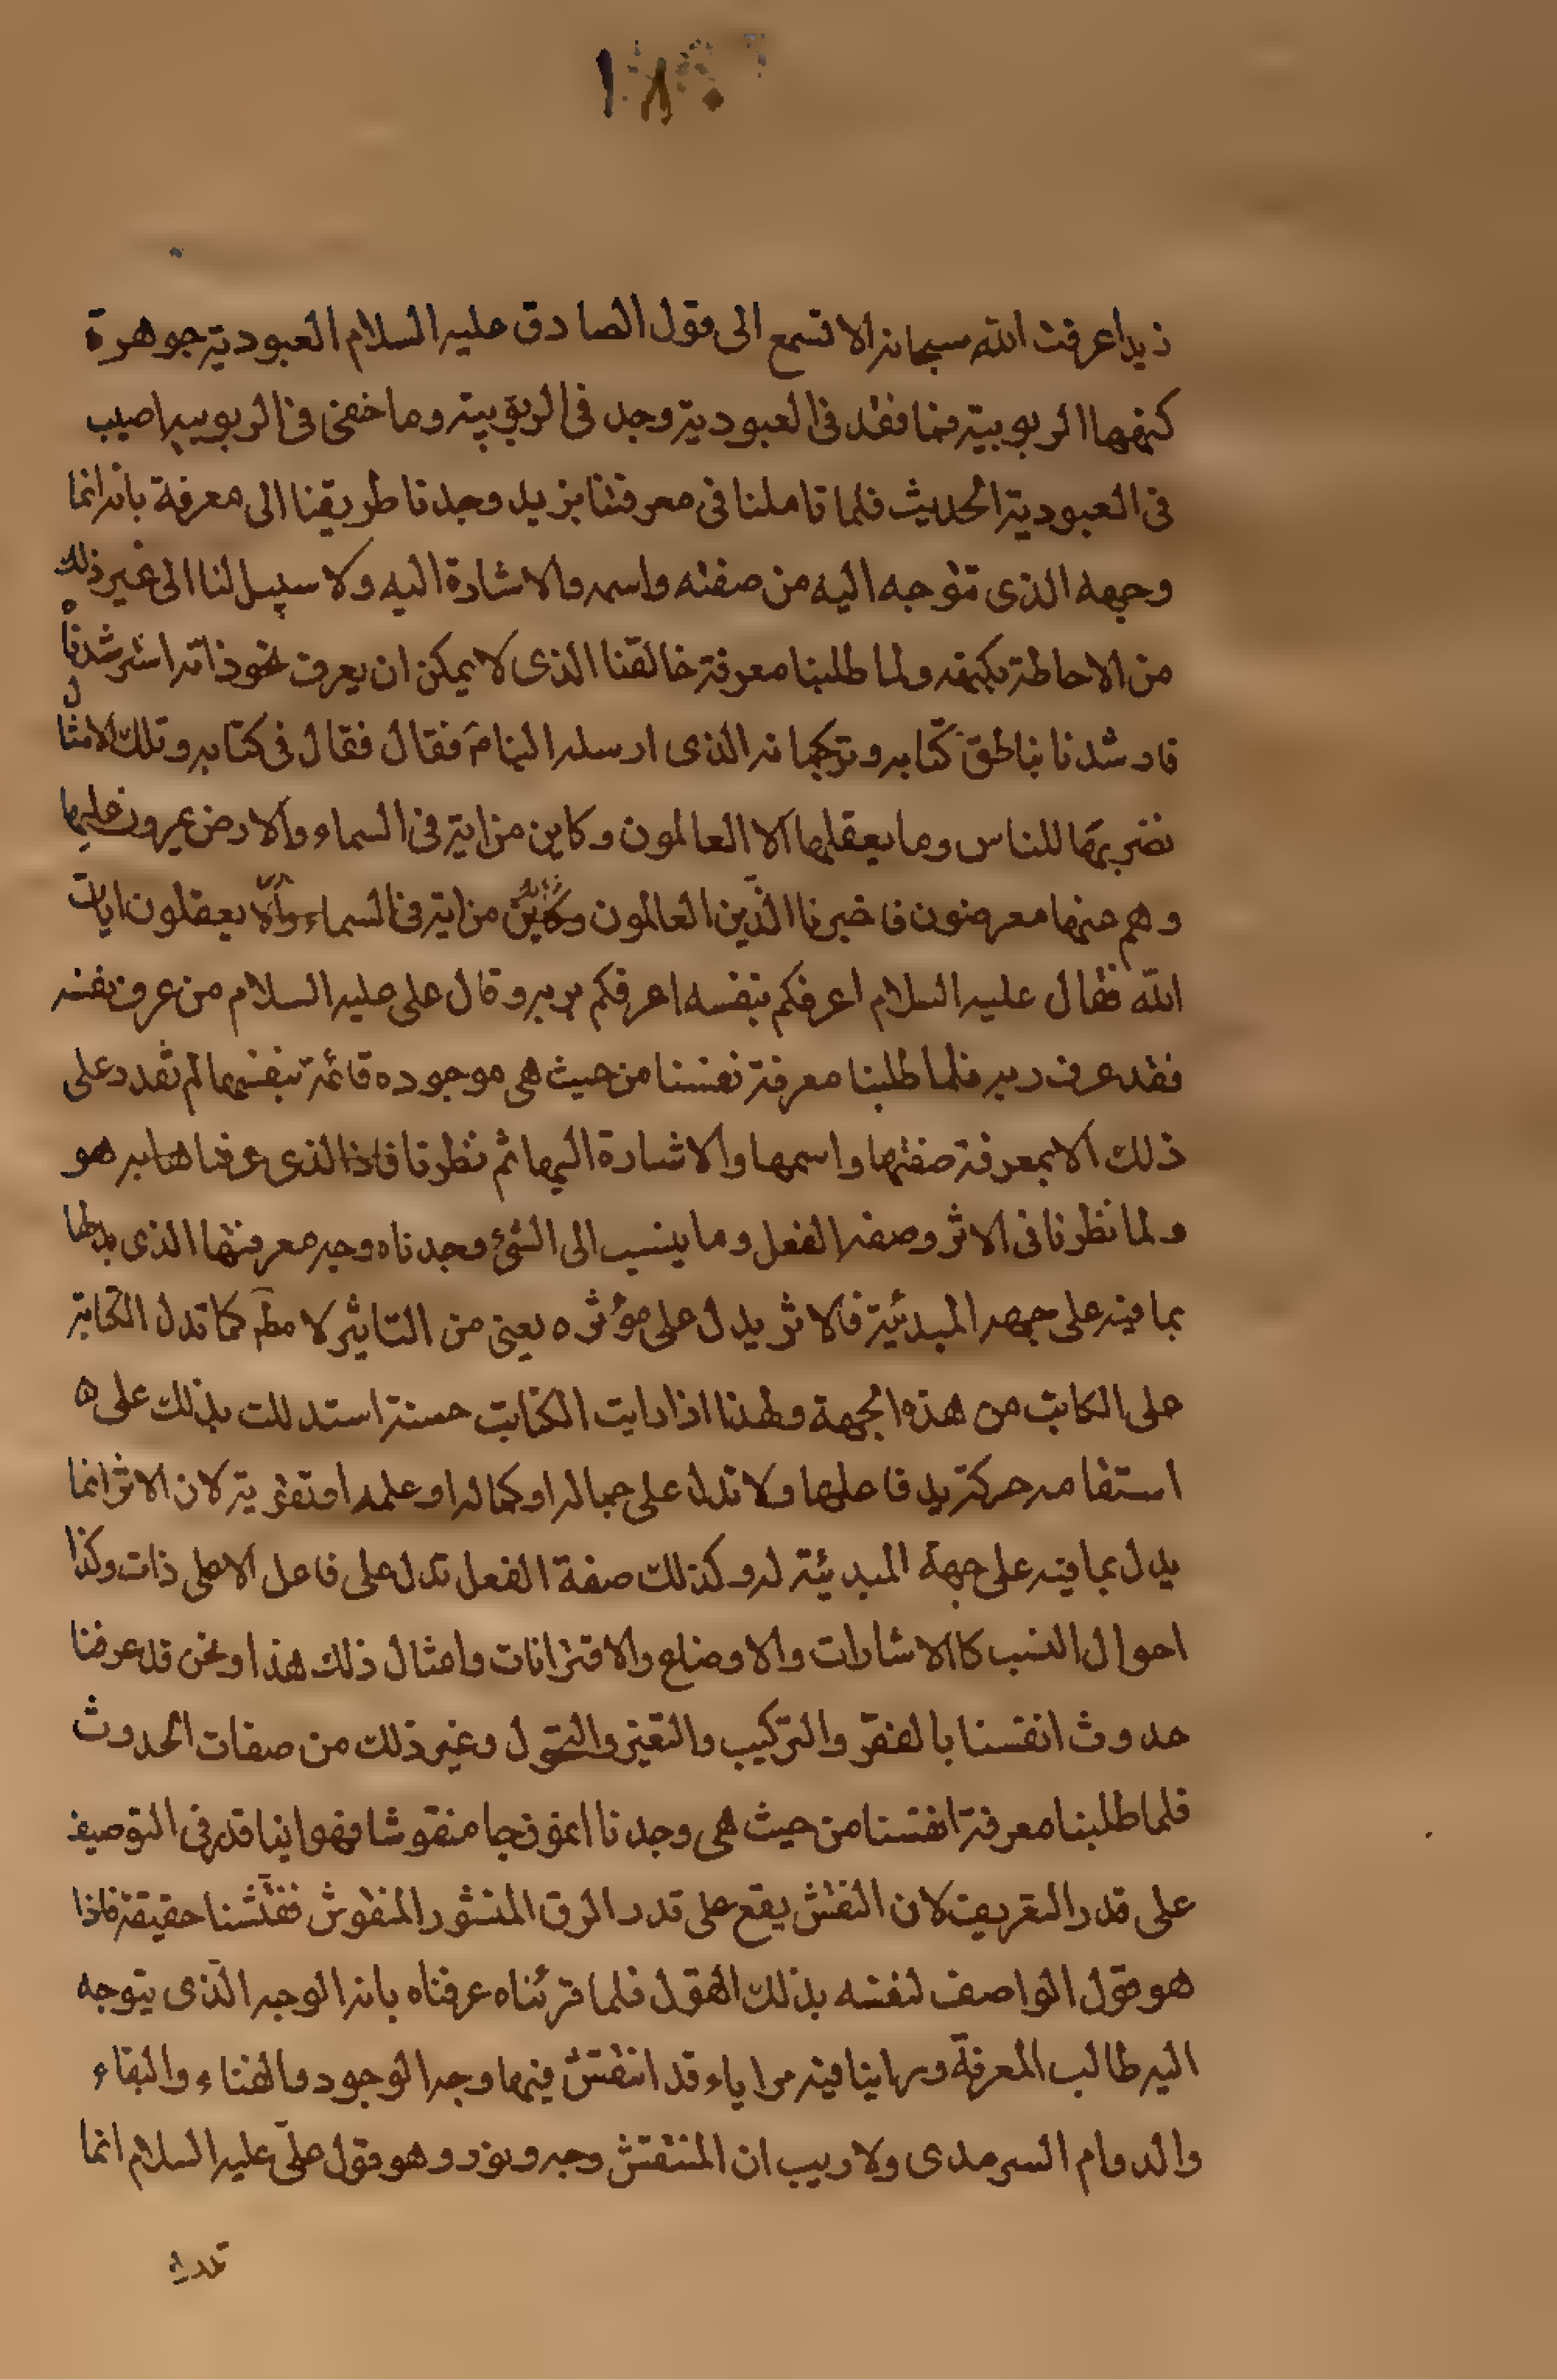 زيدا عرفت الله سبحانه الا تسمع الى قول الصادق عليه السلام العبودية جوهرة
كنهها الربوبية فما فقد فى العبودية وجد فى الربوبية وما خفى فى الربوبية اصيب
فى العبودية الحديث فلما تاملنا فى معرفتنا بزيد وجدنا طريقنا الى معرفة بانه انما
وجهه الذى تتوجه اليه من صفته واسمه والاشارة اليه ولا سبيل لنا الى غير ذلك
من الاحاطة بكنهه ولما طلبنا معرفة خالقنا الذى لا يمكن ان يعرف نحو ذاته استرشدناه
فارشدنا بناطق كتابه وترجمانه الذى ارسله الينا فقال فقال فى كتابه وتلك الامثال
نضربها للناس وما يعقلها الا العالمون وكاين من اية فى السماء والارض يمرون عليها
وهم عنها معرضون فاخبرنا الذين العالمون وكاين من اية فى السماء والا يعقلون ايات
الله فقال عليه السلام اعرفكم بنفسه اعرفكم بربه وقال على عليه السلام من عرف نفسه
فقد عرف ربه فلما طلبنا معرفة نفسنا من حيث هى موجوده قائمة بنفسها لم نقدر على
ذلك الا بمعرفة صفتها واسمها والاشارة اليها ثم نظرنا فاذا الذى عرفناها به هو
ولما نظرنا فى الاثر وصفه الفعل وما ينسب الى الشئ وجدناه وجه معرفتها الذى
بما فيه على جهه المبدئية فالاثر يدل على مؤثره يعنى من التاثير لا مطم كما تدل الكتابة
على الكاتب من هذه الجهة ولهذا اذا رايت الكتابت حسنة استدللت بذلك على ه
استقامه حركة يد فاعلها ولا تدل على جماله او كماله او علمه او تقويته لان الاثر انما
يدل بما فيه على جهة المبدئية له وكذلك صفة الفعل تدل على فاعل الا على ذات وكذا
احوال النسب كاالاشارات والاوضاع والاقترانات وامثال ذلك هذا ونحن قد عرفنا
حدوث انفسنا بالفقر والتركيب والتغير والتحول وغير ذلك من صفات الحدوث
فلما طلبنا معرفة انفسنا من حيث هى وجدنا انموذجا منقوشا فهوانيا قدر فى التوصيف
على قدر التعريف لان النقش يقع على قدر الرق المنشور المنقوش ففتشنا حقيقة فاذا
هو قول الواصف لنفسه بذلك القول فلما قرئناه عرفناه بانه الوجه الذى يتوجه
اليه طالب المعرفة وراينا فيه مراياء قد انتقش فيها وجه الوجود والفناء والبقاء
والدوام السرمدى ولا ريب ان المنتقش وجه ونور وهو قول على عليه السلام انما
تحد